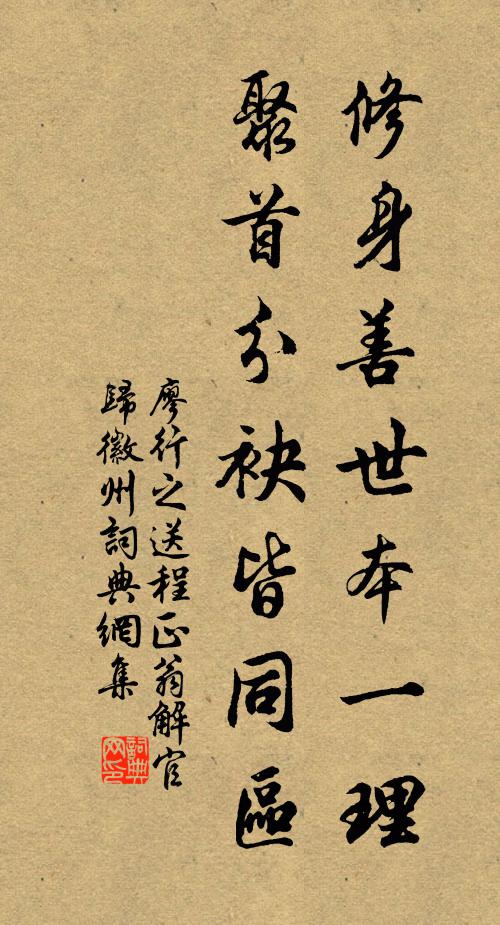 修身善世本一理
聚首分袂皆同區
廖行之送程正翁解官
歸徽州詞典網集
詞典
网印